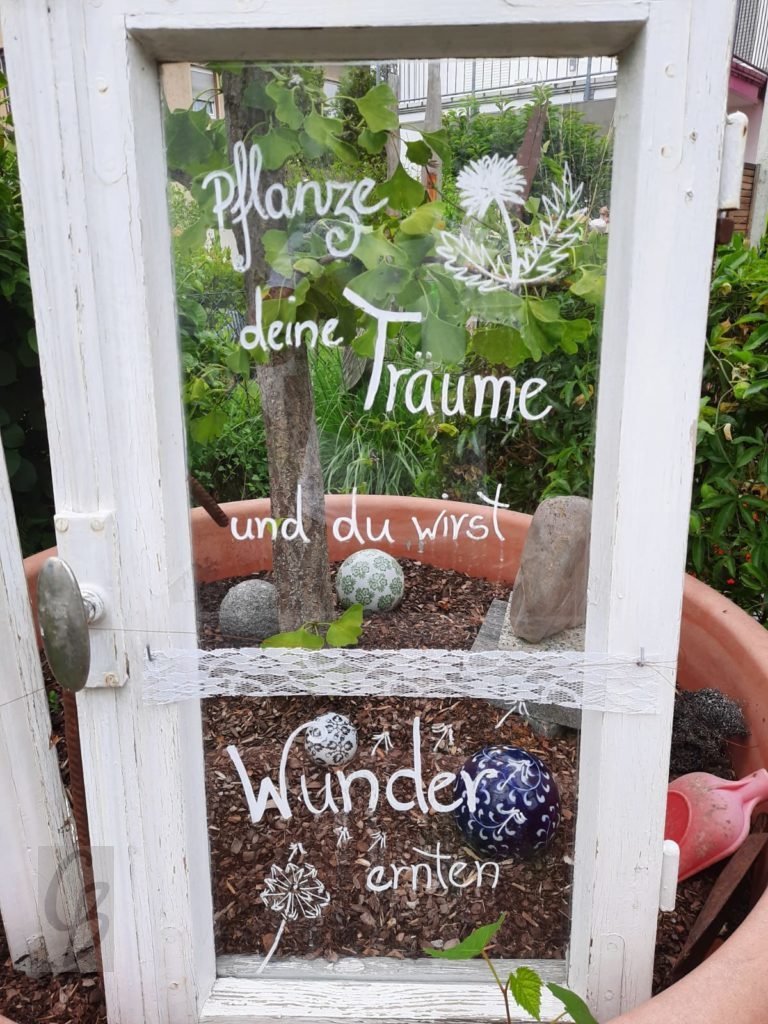 Pflanze
deine Träume
und du wirst
Wunder
ernten